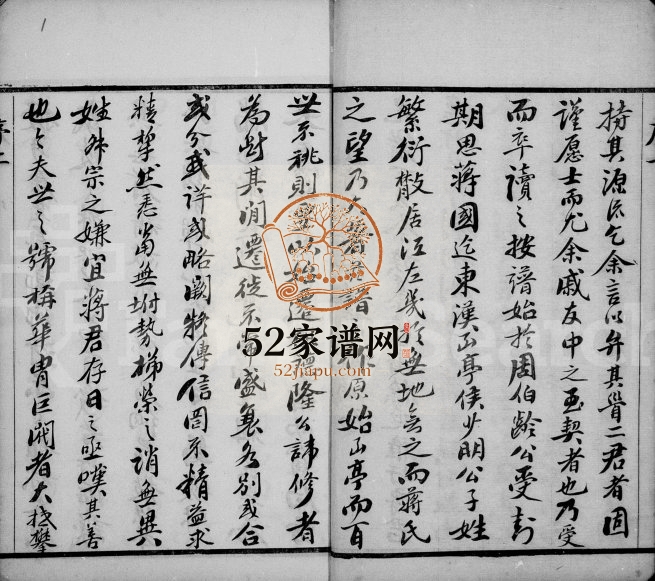 掎其源流乞余言以弁其首二君者固
谨愿士而尤余戚友中之至契者也乃受
而卒讀之按譜始於周伯齡公受封
期思蔣國迄東漢山亭侯少明公子姓
繁衍散居江左幾於無地無之而蔣氏
之望乃 著 譜 原始山亭而百
世不祧則 以始遷 隆公諱修者
為 其間遷徙不常盛衰各別或合
或分或詳或略闕疑傳信罔不精益求
精挚然悉當無坿勢梯榮之誚無異
姓外宗之嫌宜蔣君存日之亟嘆其善
也夫世之號稱華胄巨閥者大抵攀
序一
序二
1
52家谱网
52jiapu.com